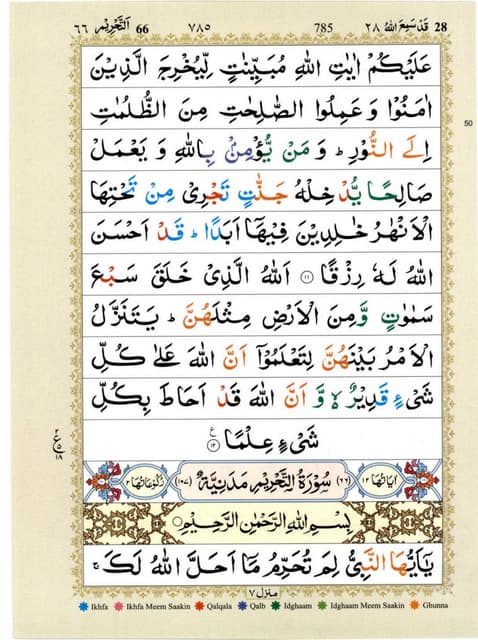 ٦٦ اَلتَّحْرِيْم 66 ٧٨٥ 785 قَدْ سَمِعَ اللّٰهُ ٢٨ 28
عَلَيْكُمْ اٰيٰتِ اللّٰهِ مُبَيِّنٰتٍ لِّيُخْرِجَ الَّذِيْنَ
اٰمَنُوْا وَ عَمِلُوا الصّٰلِحٰتِ مِنَ الظُّلُمٰتِ
اِلَى النُّوْرِ ؕ وَ مَنْ يُّؤْمِنْۢ بِاللّٰهِ وَ يَعْمَلْ
صَالِحًا يُّدْخِلْهُ جَنّٰتٍ تَجْرِيْ مِنْ تَحْتِهَا
الْاَنْهٰرُ خٰلِدِيْنَ فِيْهَاۤ اَبَدًا ؕ قَدْ اَحْسَنَ
اللّٰهُ لَهٗ رِزْقًا ۝۱۱ اَللّٰهُ الَّذِيْ خَلَقَ سَبْعَ
سَمٰوٰتٍ وَّ مِنَ الْاَرْضِ مِثْلَهُنَّ ؕ يَتَنَزَّلُ
الْاَمْرُ بَيْنَهُنَّ لِتَعْلَمُوْۤا اَنَّ اللّٰهَ عَلٰى كُلِّ
شَيْءٍ قَدِيْرٌ ۙ۬ وَّ اَنَّ اللّٰهَ قَدْ اَحَاطَ بِكُلِّ
شَيْءٍ عِلْمًا ۝۱۲ ع
٢
ع
١٨
اٰيَاتُهَا ١٢ (٦٦) سُوْرَةُ التَّحْرِيْمِ مَدَنِيَّةٌ (١٠٧) رُكُوْعَاتُهَا ٢
بِسْمِ اللّٰهِ الرَّحْمٰنِ الرَّحِيْمِ
يٰۤاَيُّهَا النَّبِيُّ لِمَ تُحَرِّمُ مَاۤ اَحَلَّ اللّٰهُ لَكَ ۚ
منزل ٧
50
Ikhfa Ikhfa Meem Saakin Qalqala Qalb Idghaam Idghaam Meem Saakin Ghunna